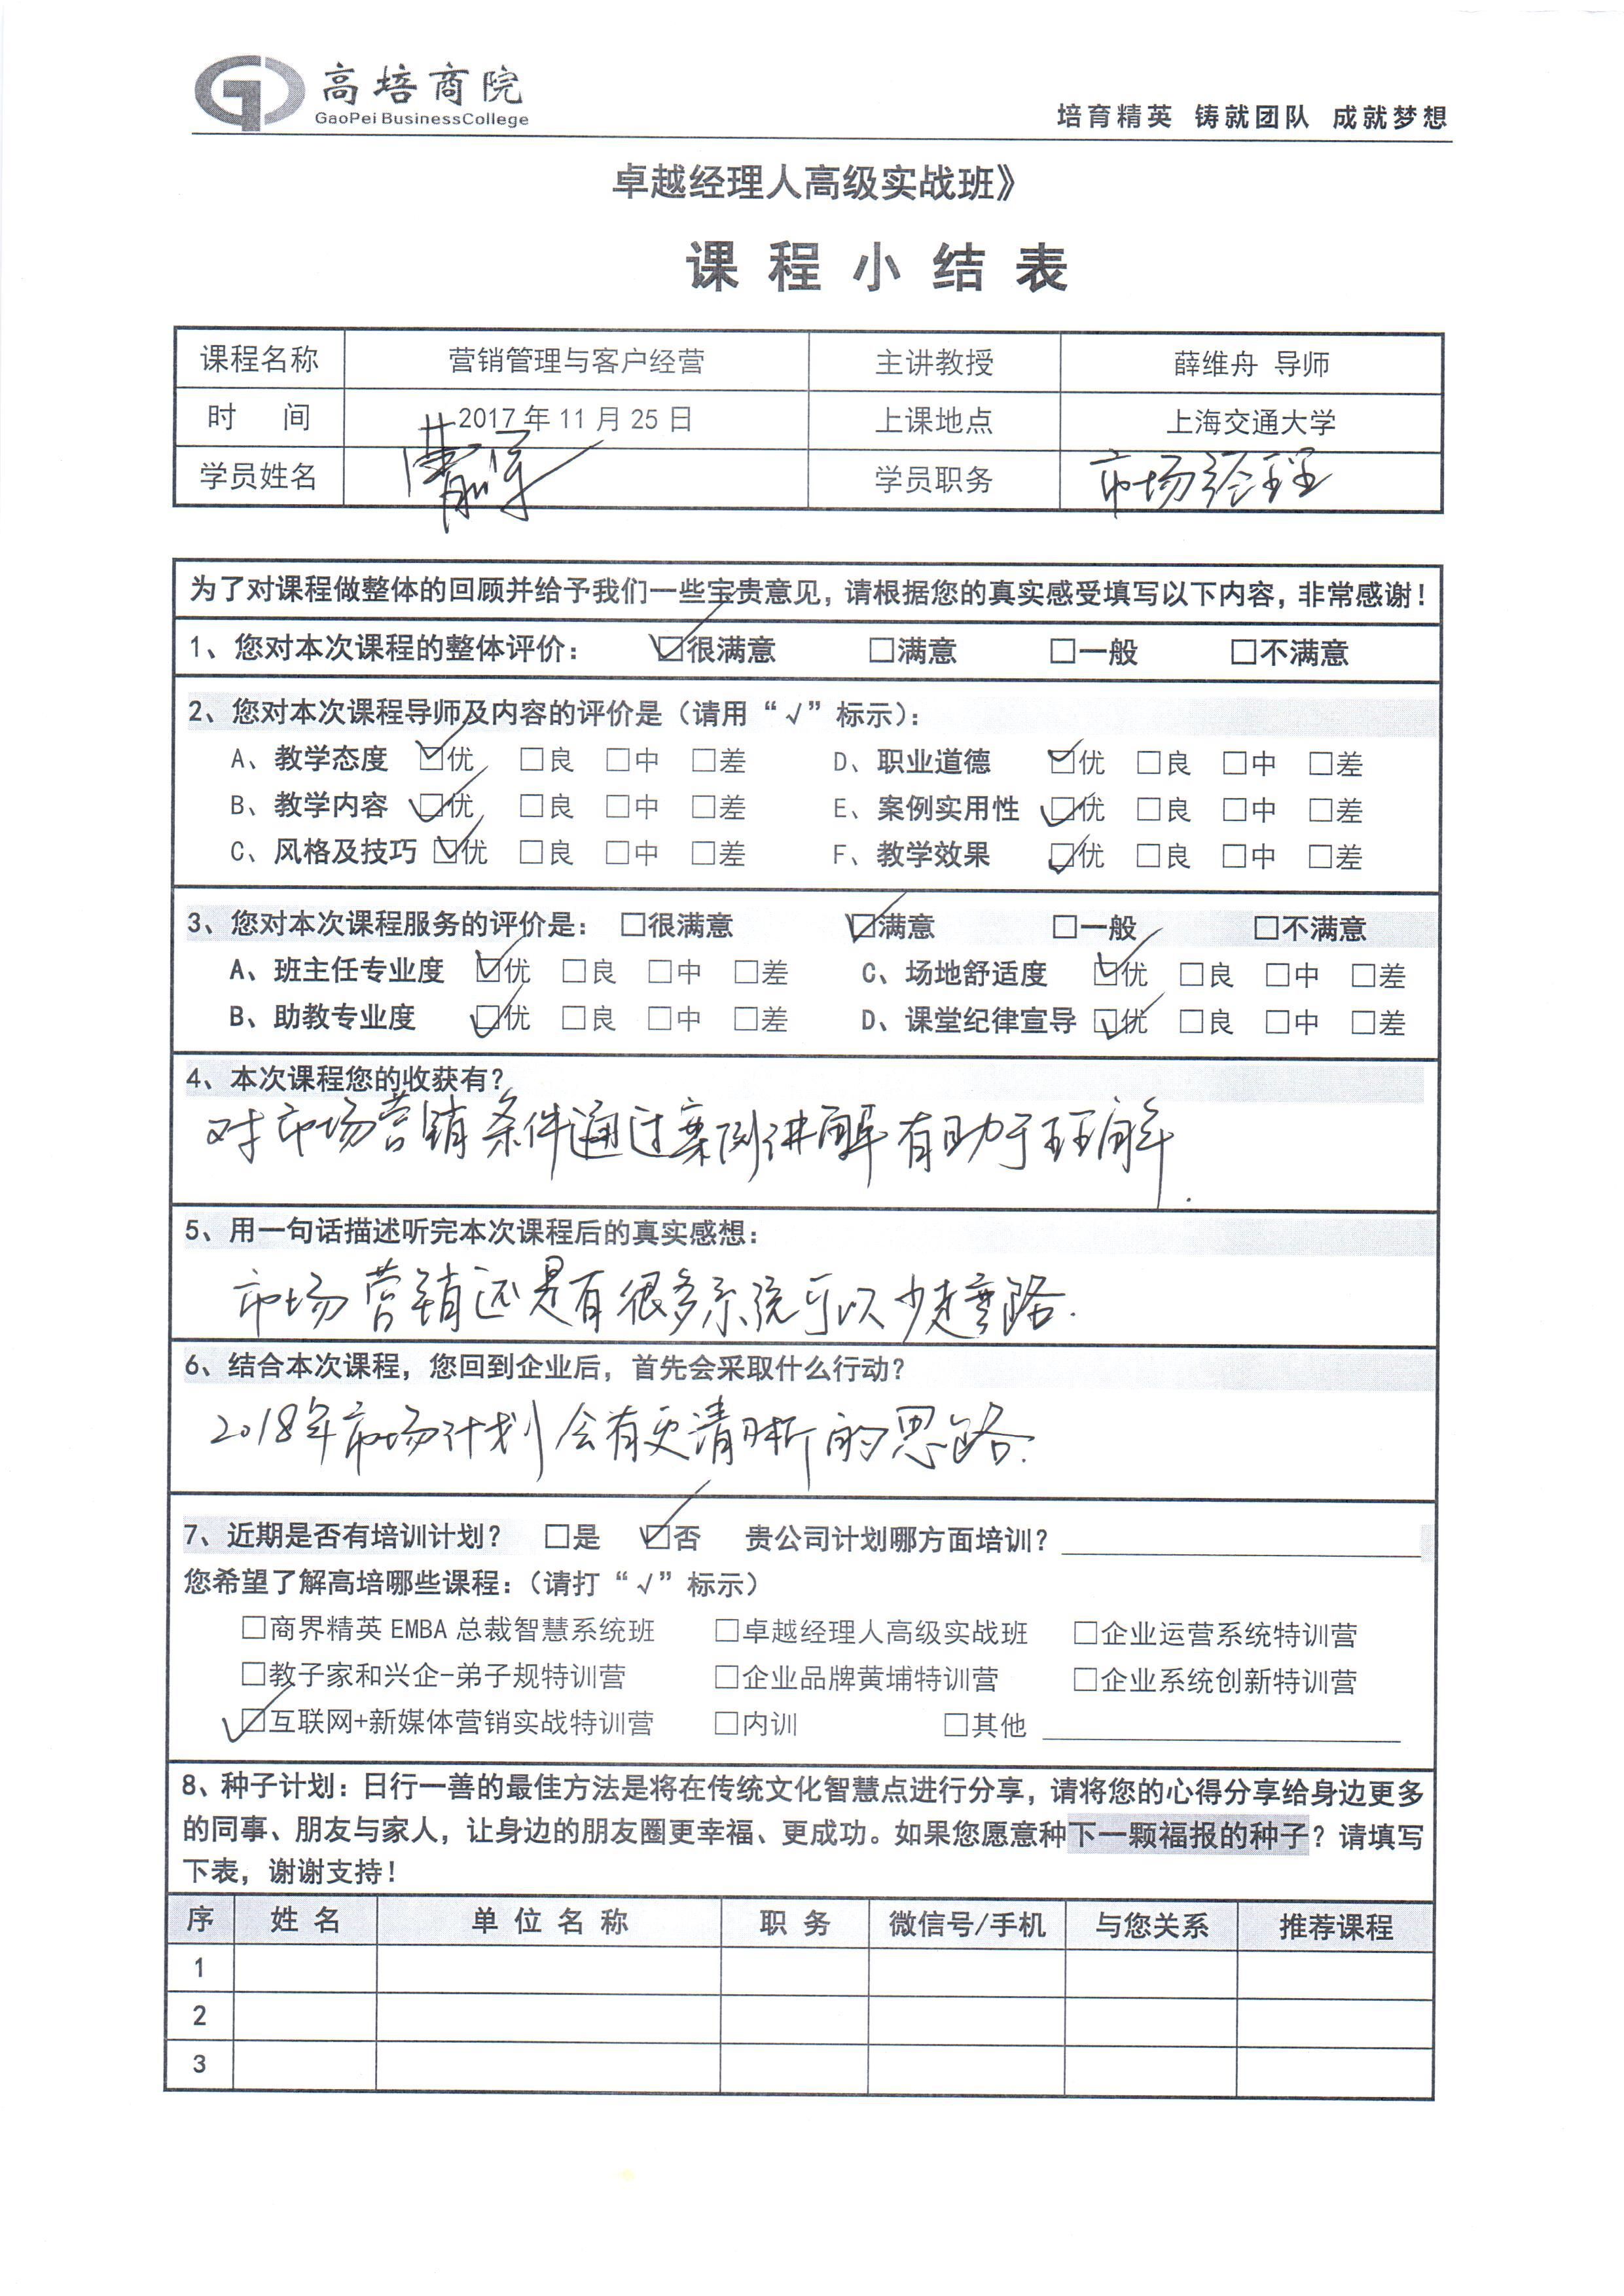 高培商院
GaoPei BusinessCollege
培育精英 铸就团队 成就梦想
卓越经理人高级实战班》
课程小结表
课程名称 营销管理与客户经营 主讲教授 薛维舟 导师
时 间 2017年11月25日 上课地点 上海交通大学
学员姓名 学员职务 市场经理
为了对课程做整体的回顾并给予我们一些宝贵意见，请根据您的真实感受填写以下内容，非常感谢！
1、您对本次课程的整体评价： ☑很满意 □满意 □一般 □不满意
2、您对本次课程导师及内容的评价是（请用“√”标示）：
A、教学态度 ☑优 □良 □中 □差 D、职业道德 ☑优 □良 □中 □差
B、教学内容 ☑优 □良 □中 □差 E、案例实用性 ☑优 □良 □中 □差
C、风格及技巧 ☑优 □良 □中 □差 F、教学效果 ☑优 □良 □中 □差
3、您对本次课程服务的评价是： □很满意 ☑满意 □一般 □不满意
A、班主任专业度 ☑优 □良 □中 □差 C、场地舒适度 ☑优 □良 □中 □差
B、助教专业度 ☑优 □良 □中 □差 D、课堂纪律宣导 ☑优 □良 □中 □差
4、本次课程您的收获有？
对市场营销条件通过案例讲解有助于理解.
5、用一句话描述听完本次课程后的真实感想：
市场营销还是有很多系统可以少走弯路.
6、结合本次课程，您回到企业后，首先会采取什么行动？
2018年市场计划会有更清晰的思路.
7、近期是否有培训计划？ □是 ☑否 贵公司计划哪方面培训？
您希望了解高培哪些课程：（请打“√”标示）
□商界精英EMBA总裁智慧系统班 □卓越经理人高级实战班 □企业运营系统特训营
□教子家和兴企-弟子规特训营 □企业品牌黄埔特训营 □企业系统创新特训营
☑互联网+新媒体营销实战特训营 □内训 □其他
8、种子计划：日行一善的最佳方法是将在传统文化智慧点进行分享，请将您的心得分享给身边更多
的同事、朋友与家人，让身边的朋友圈更幸福、更成功。如果您愿意种下一颗福报的种子？请填写
下表，谢谢支持！
序 姓名 单位名称 职务 微信号/手机 与您关系 推荐课程
1
2
3